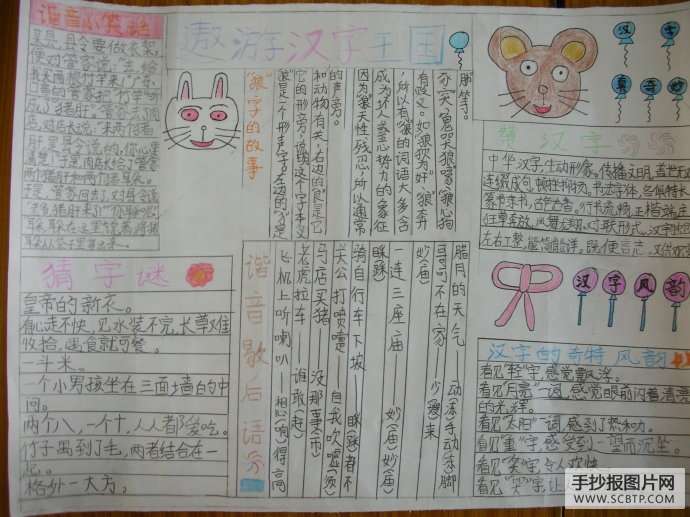 谐音小笑话
某县,县令要做衣架,
便对管家说,"去给
我买两根竹竿来!"广东
口音的管家把"竹竿"听
成了"猪肝"。管家去了肉
店,对店大说:"来两付猪
肝,县令说的,你心里
清楚!"于是,肉店长给了管家
两个猪肝和两个猪耳朵。
遨游汉字王国
"狼"字的故事
狼是一个形声字。左边的"犭"是
它的形旁,说明这个字本义
和动物有关,右边的"良"是它
的声旁。
因为"狼"天性残忍,所以通常
成为坏人或恶势力的象征
,所以有"狼"的词语大多含
有贬义。如"狼狈为奸""狼奔
豕突""鬼哭狼嚎""狼心狗
肺"等。
汉
字
真
奇
妙
赞汉字
中华汉字,生动形象。传播文明,盖世无
连缀成句,顿挫抑扬。书法字体,各俱特长
篆书隶书,古色古香。行书流畅,正楷端
狂草奔放,凤舞龙翔。对联形式,汉字独
左右工整,能简能详。既便言志,又供欣
汉
字
风
韵
猜字谜
皇帝的新衣。
有心走不快,见水装不完,长草难
收拾,遇食就可餐。
一斗米。
一个小男孩坐在三面墙白的中
间。
两个八,一个十,人人都爱吃。
竹子高到了毛,两者结合在一
起。
格外一大方。
谐音歇后语
飞机上听喇叭——想(响)得高
老虎拉车——谁敢(赶)
马店买猪——没那事(市)
关公打喷嚏——自我吹嘘(须)
骑自行车下坡——睬(踩)都不
睬(踩)
一连三座庙——妙(庙)妙(庙)
妙(庙)
哥哥不在家——少(嫂)来
腊月的天气——动(冻)手动(冻)脚
汉字的奇特风韵
看见"轻"字,感觉飘浮。
看见"月亮"一词,感觉眼前闪着清亮
的光泽。
看见"太阳"一词,感到了热和力。
看见"重"字,感觉到一望而沉坠。
看见"笑"字,令人欢快。
看见"哭"字,让
手抄报图片网
WWW.SCBTP.COM